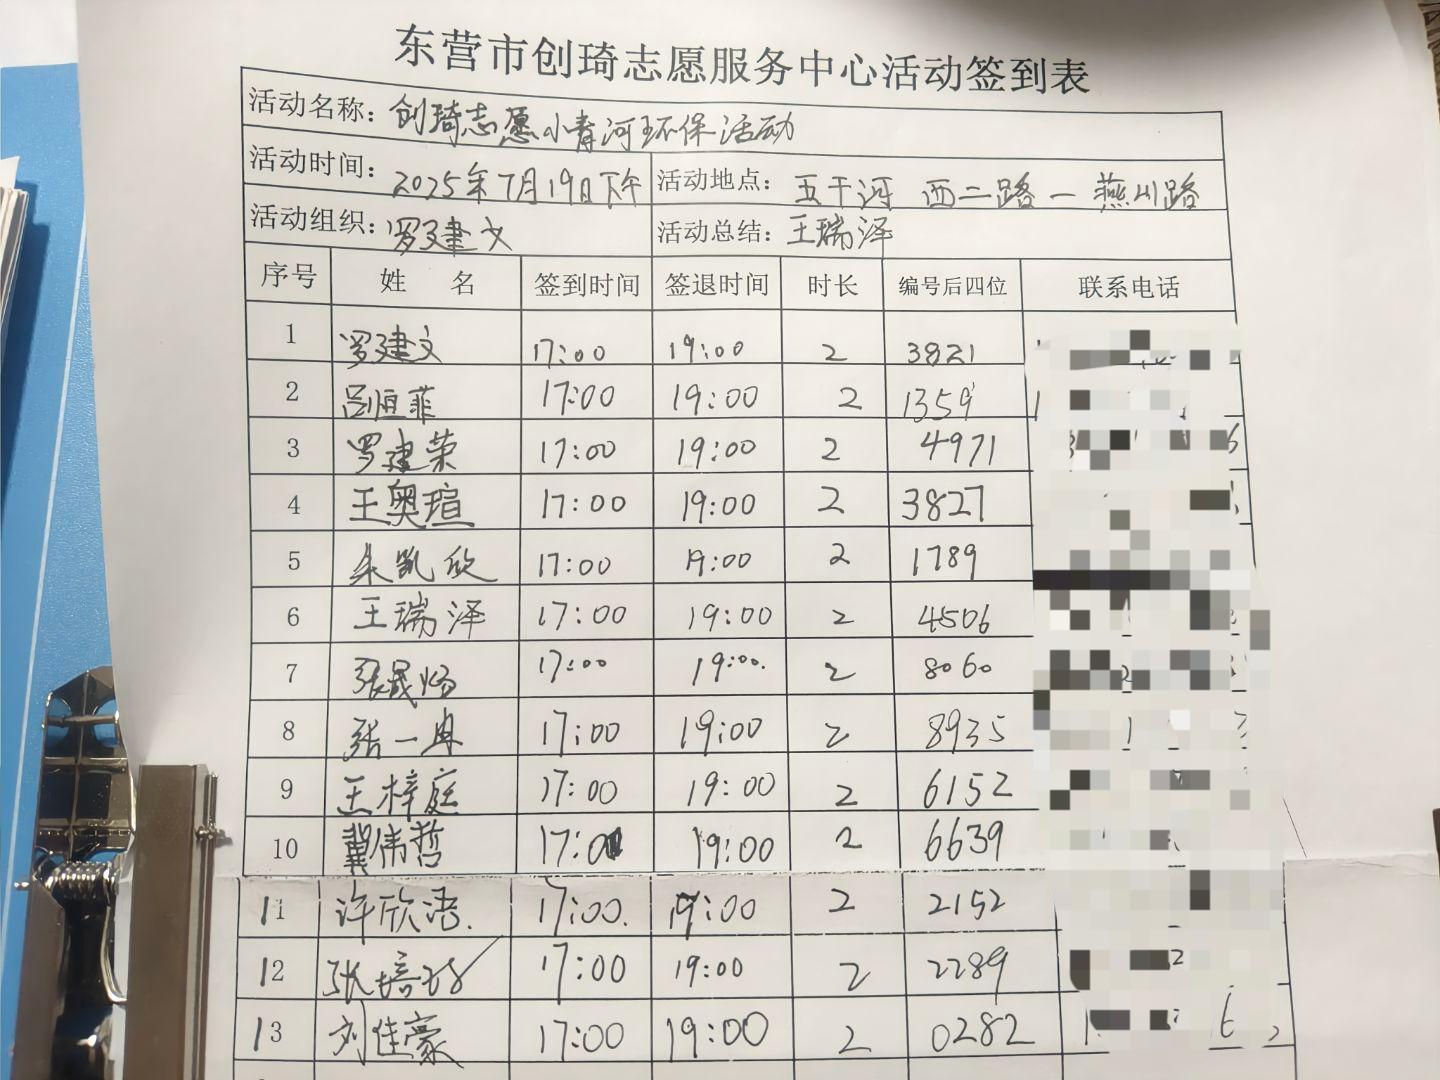 东营市创琦志愿服务中心活动签到表
活动名称：创琦志愿小青河环保活动
活动时间：2025年7月19日下午 活动地点：五干河 西二路一燕山路
活动组织：罗建文 活动总结：王瑞泽
序号 姓 名 签到时间 签退时间 时长 编号后四位 联系电话
1 罗建文 17:00 19:00 2 3821
2 吕恒菲 17:00 19:00 2 1359
3 罗建荣 17:00 19:00 2 4971
4 王奥瑄 17:00 19:00 2 3827
5 朱凯欣 17:00 19:00 2 1789
6 王瑞泽 17:00 19:00 2 4506
7 张晟炀 17:00 19:00. 2 8060
8 张一冉 17:00 19:00 2 8935
9 王梓庭 17:00 19:00 2 6152
10 冀伟哲 17:00 19:00 2 6639
11 许欣语. 17:00. 19:00 2 2152
12 张培 17:00 19:00 2 2289
13 刘佳豪 17:00 19:00 2 0282